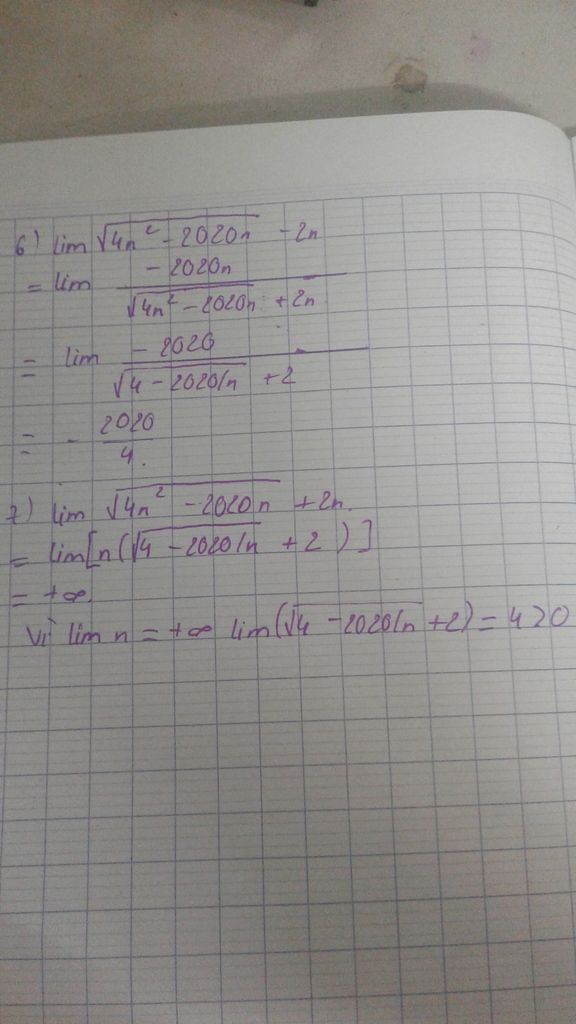 6) lim √(4n² - 2020n) - 2n
= lim (- 2020n) / (√(4n² - 2020n) + 2n)
= lim (- 2020) / (√(4 - 2020/n) + 2)
= - 2020/4.
7) lim √(4n² - 2020n) + 2n.
= lim[n(√(4 - 2020/n) + 2)]
= +∞.
Vì lim n = +∞ lim(√(4 - 2020/n) + 2) = 4 > 0